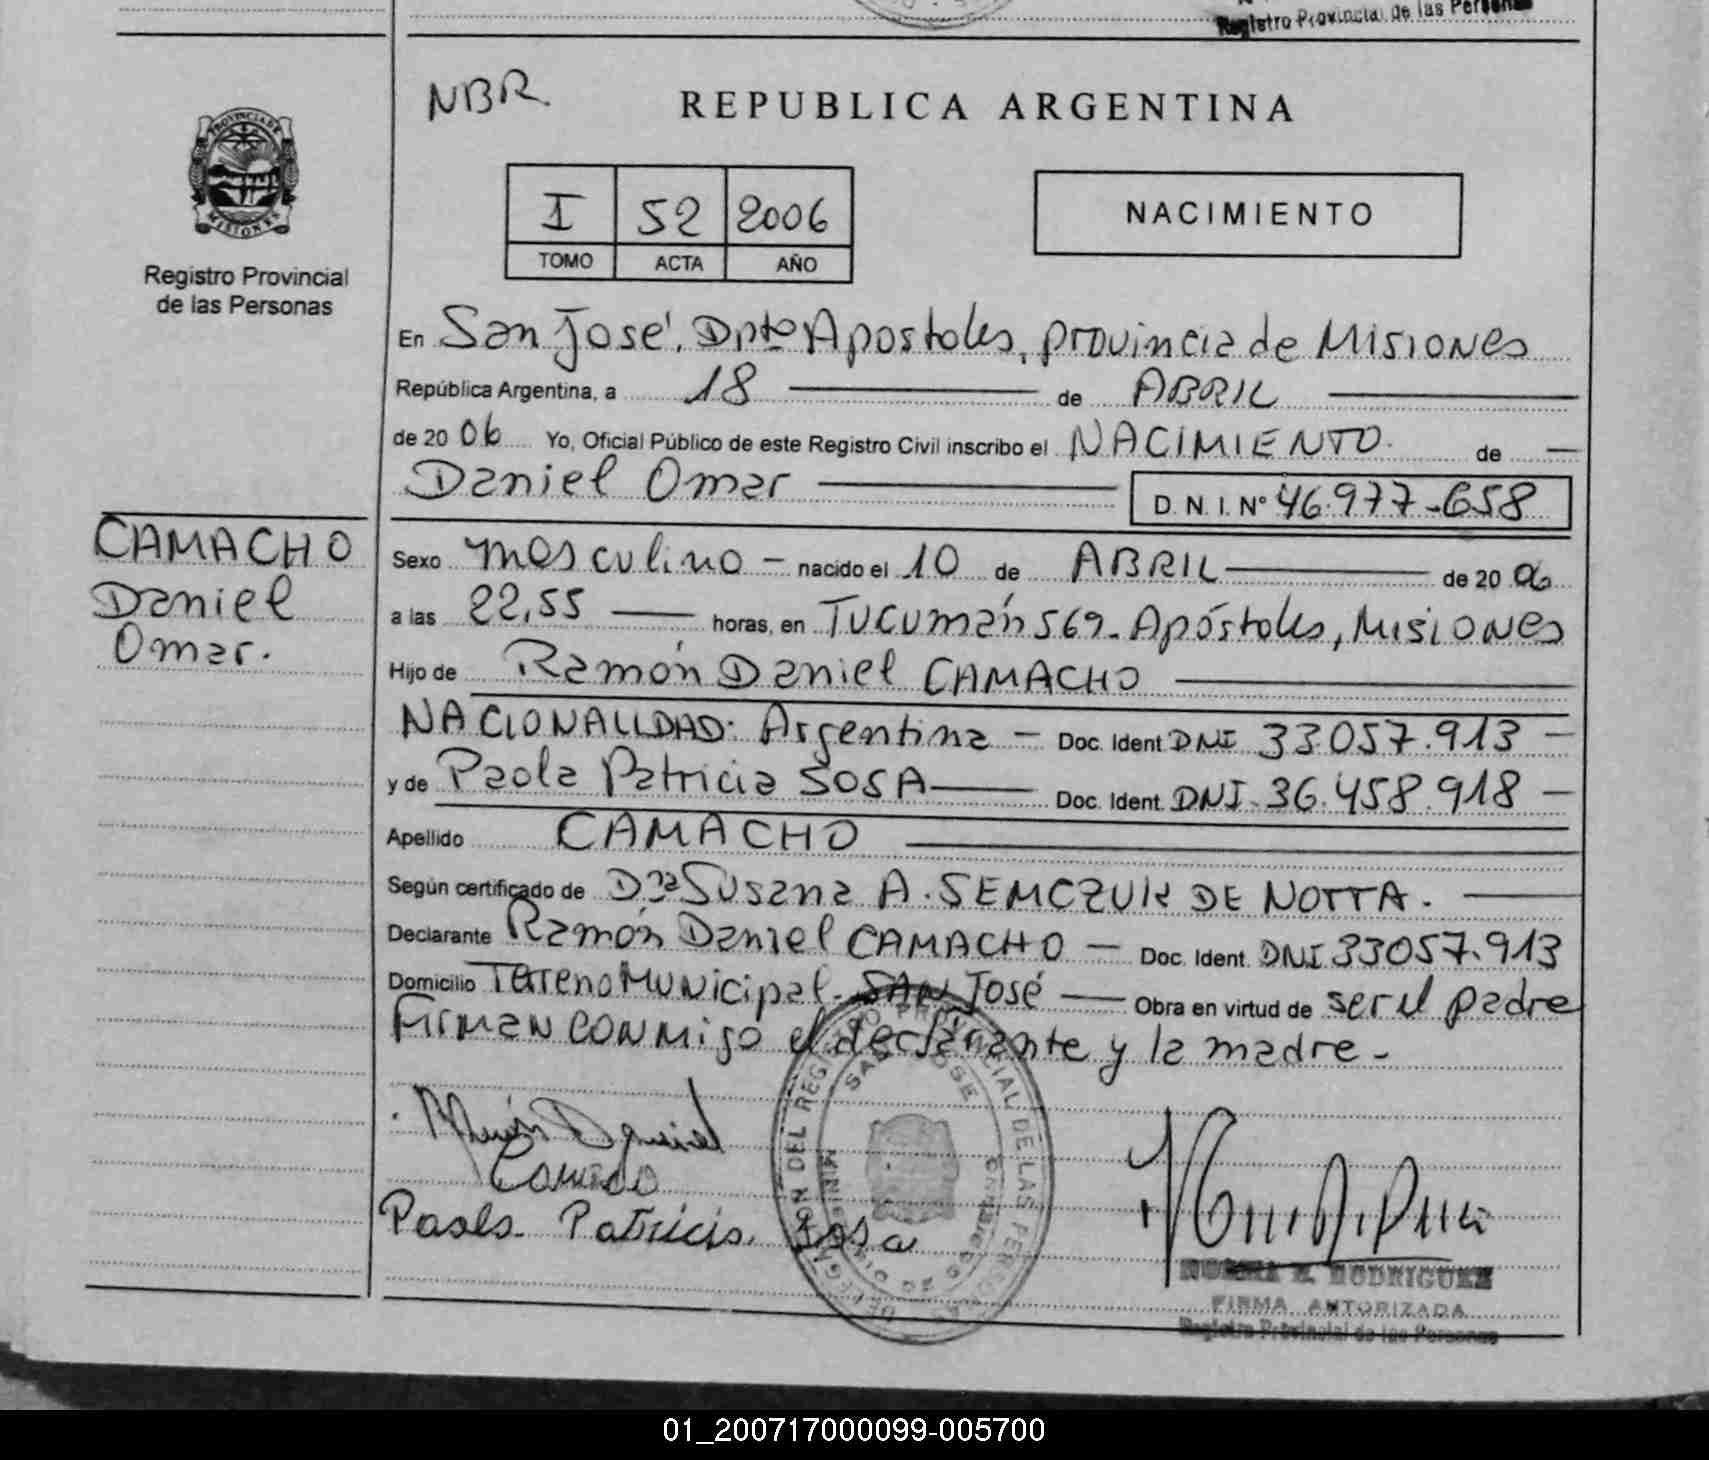 Registro Provincial de las Personas
NBR
REPUBLICA ARGENTINA
PROVINCIA DE
MISIONES
Registro Provincial
de las Personas
I 52 2006
TOMO ACTA AÑO
NACIMIENTO
En San José. Dpto Apostoles, provincia de Misiones
República Argentina, a 18 de ABRIL
de 2006 Yo, Oficial Público de este Registro Civil inscribo el NACIMIENTO. de
Daniel Omar D. N. I. Nº 46.977.658
CAMACHO
Daniel
Omar.
Sexo masculino - nacido el 10 de ABRIL de 2006
a las 22,55 horas, en Tucumán 569. Apóstoles, Misiones
Hijo de Ramón Daniel CAMACHO
NACIONALIDAD: Argentina - Doc. Ident DNI 33.057.913 -
y de Paola Patricia SOSA Doc. Ident. DNI. 36.458.918 -
Apellido CAMACHO
Según certificado de Dra Susana A. SEMCZUK DE NOTTA.
Declarante Ramón Daniel CAMACHO - Doc. Ident. DNI 33057.913
Domicilio Terreno Municipal. SAN José Obra en virtud de ser el padre
Firman conmigo el declarante y la madre -
Daniel
Paola Patricia Sosa
DELEGACION DEL REGISTRO PROVINCIAL DE LAS PERSONAS
SAN JOSE
MISIONES
RODRIGUEZ
FIRMA AUTORIZADA
Registro Provincial de las Personas
01_200717000099-005700